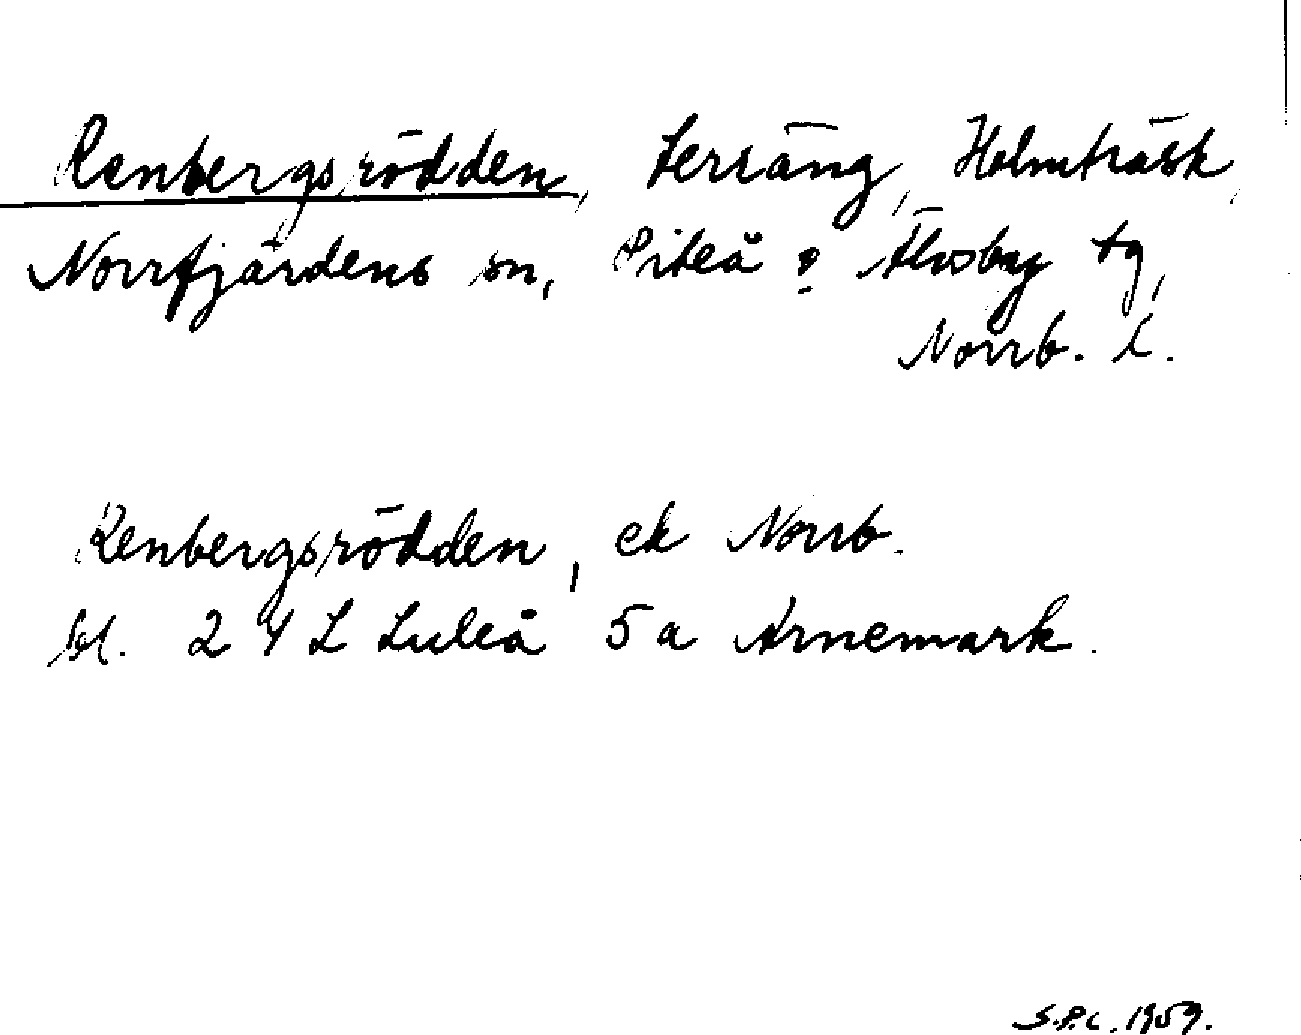 Renbergsrödden, terräng, Holmträsk,
Norrfjärdens sn, Piteå o. Älvsby tg,
Norrb. l.
Renbergsrödden, ek Norrb.
bl. 24 L Luleå 5a Arnemark.
S.P.C. 1959.